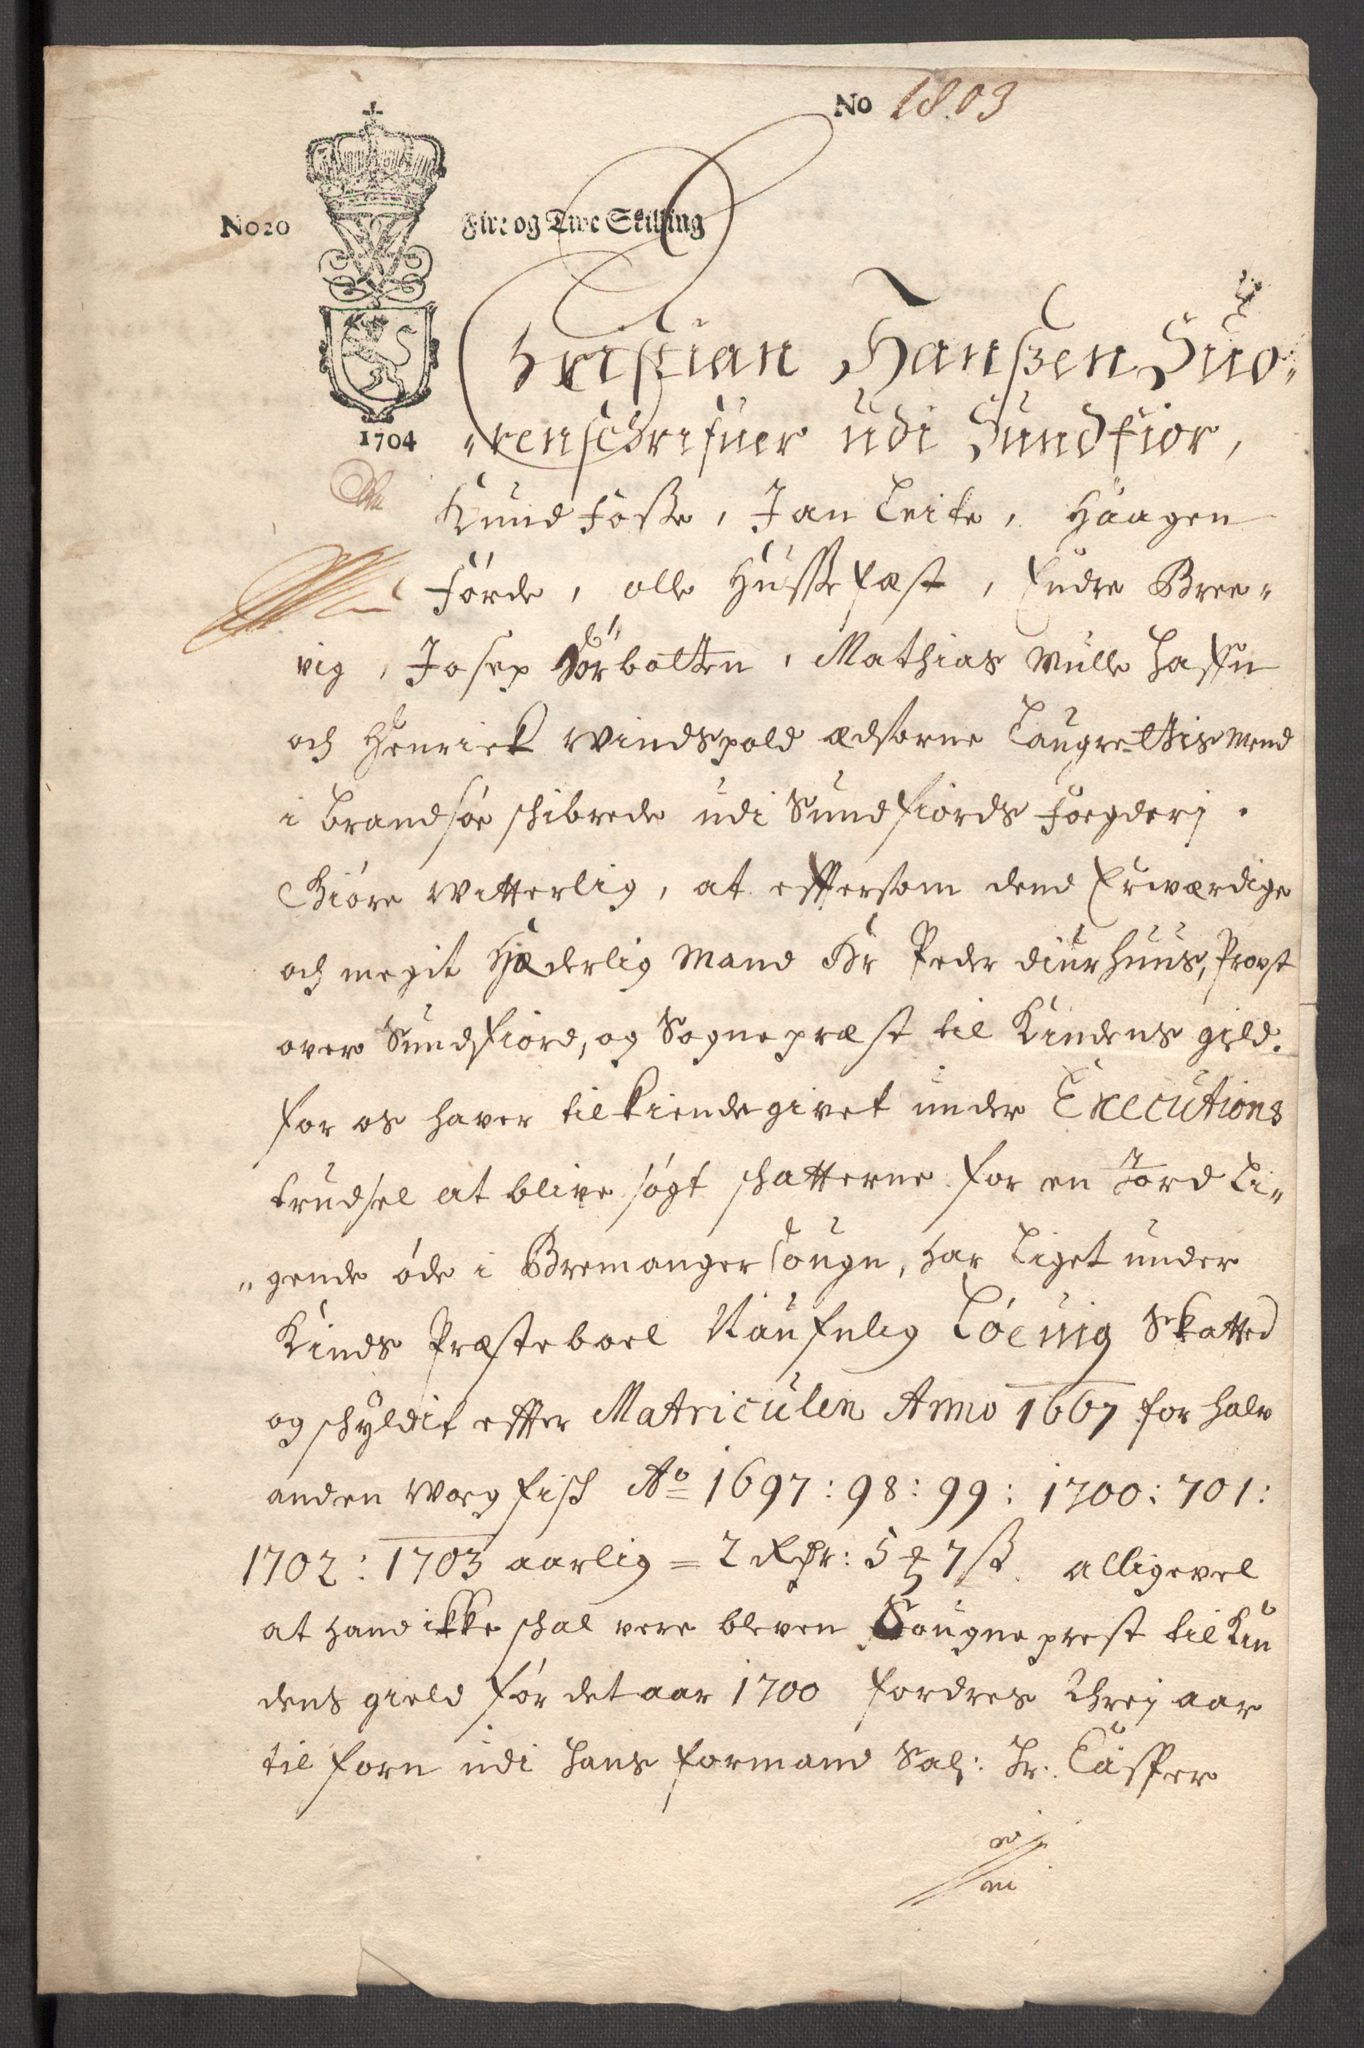 No 1803
No 20 Fire og Tive Skilling
1704
Christian Hanßen Suo-
renschrifuer udi Sundfior,
Knud Foße, Jan Leite, Haagen
Førde, olle Hussefæst, Endre Bree-
vig, Josep Dørbolten, Mathias Mulle Hassen
och Henrick Windspold ædsorne Laugrettis Mend
i Brandsøe schibrede udi Sundfiords Foegderj.
Giøre witterlig, at effersom dend Erwærdige
och megit Hæderlig Mand Hr Peder Diurhuus, Provst
over Sundfiord, og Sognepræst til Kindens gield.
for os haver tilkiendegivet under Executions
trudsel at blive søgt schatterne for en Jord Li-
gende øde i Bremanger Sougn, har Liget under
Kinds Præsteboel Naufnlig Løevig Skatted
og schyldit effter Matriculen Anno 1667 for halv
anden Woeg fisch Ao 1697: 98: 99: 1700: 701:
1702: 1703 aarlig = 2 Rdr: 5 # 7 ß. alligevel
at hand ikke schal vere bleven Sougneprest til Kin
dens gield før det aar 1700 fordres threj aar
til forn udi hans formand Sal: Hr. Casper